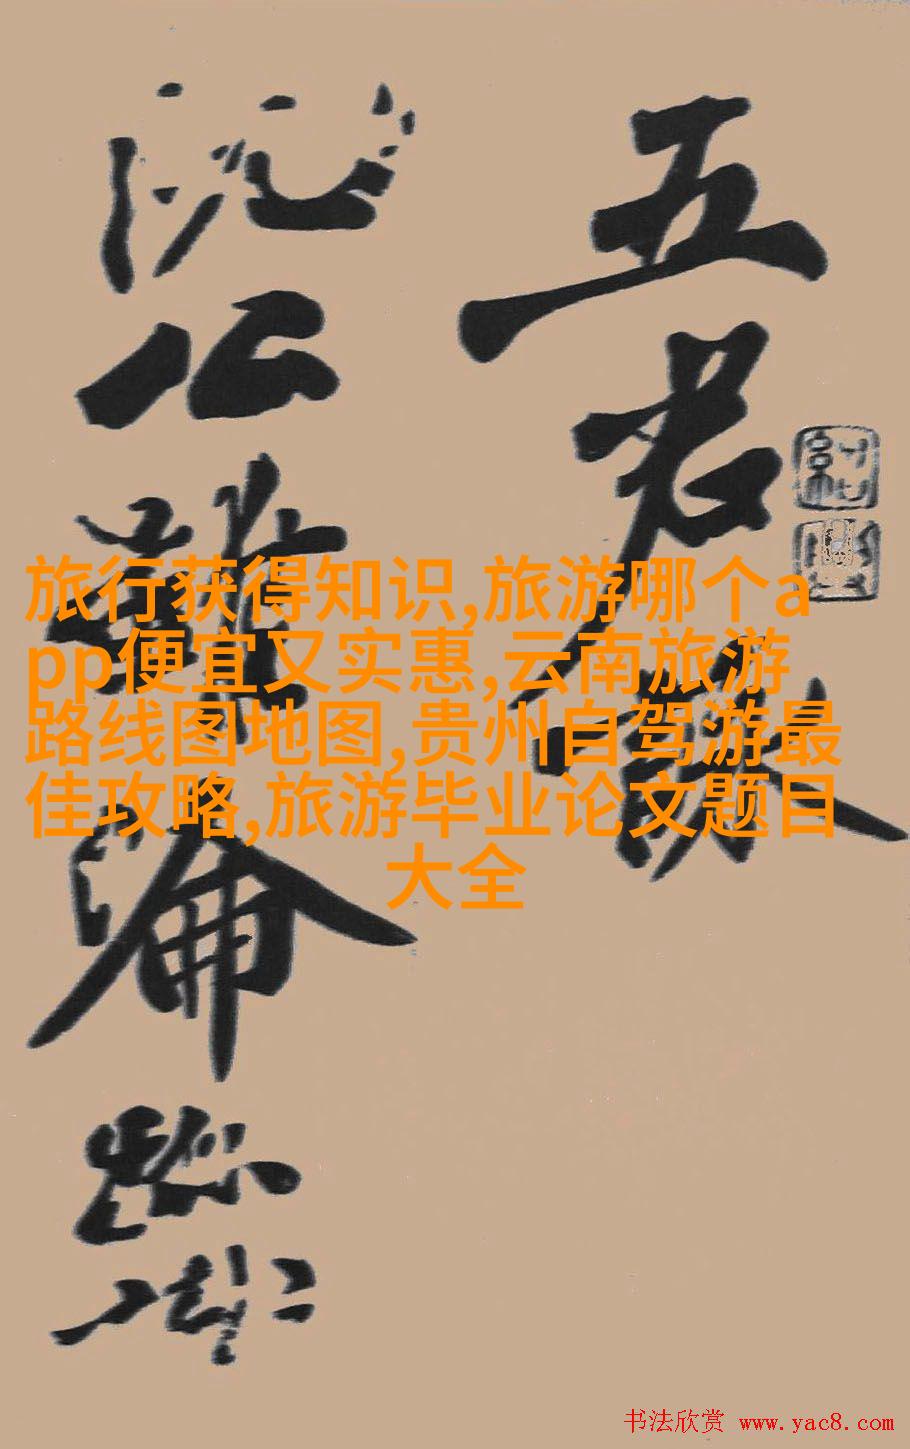 五君咏
沉公雖淪跡
旅行获得知识,旅游哪个a
pp便宜又实惠,云南旅游
路线图地图,贵州自驾游最
佳攻略,旅游毕业论文题目
大全
书法欣赏 www.yac8.com